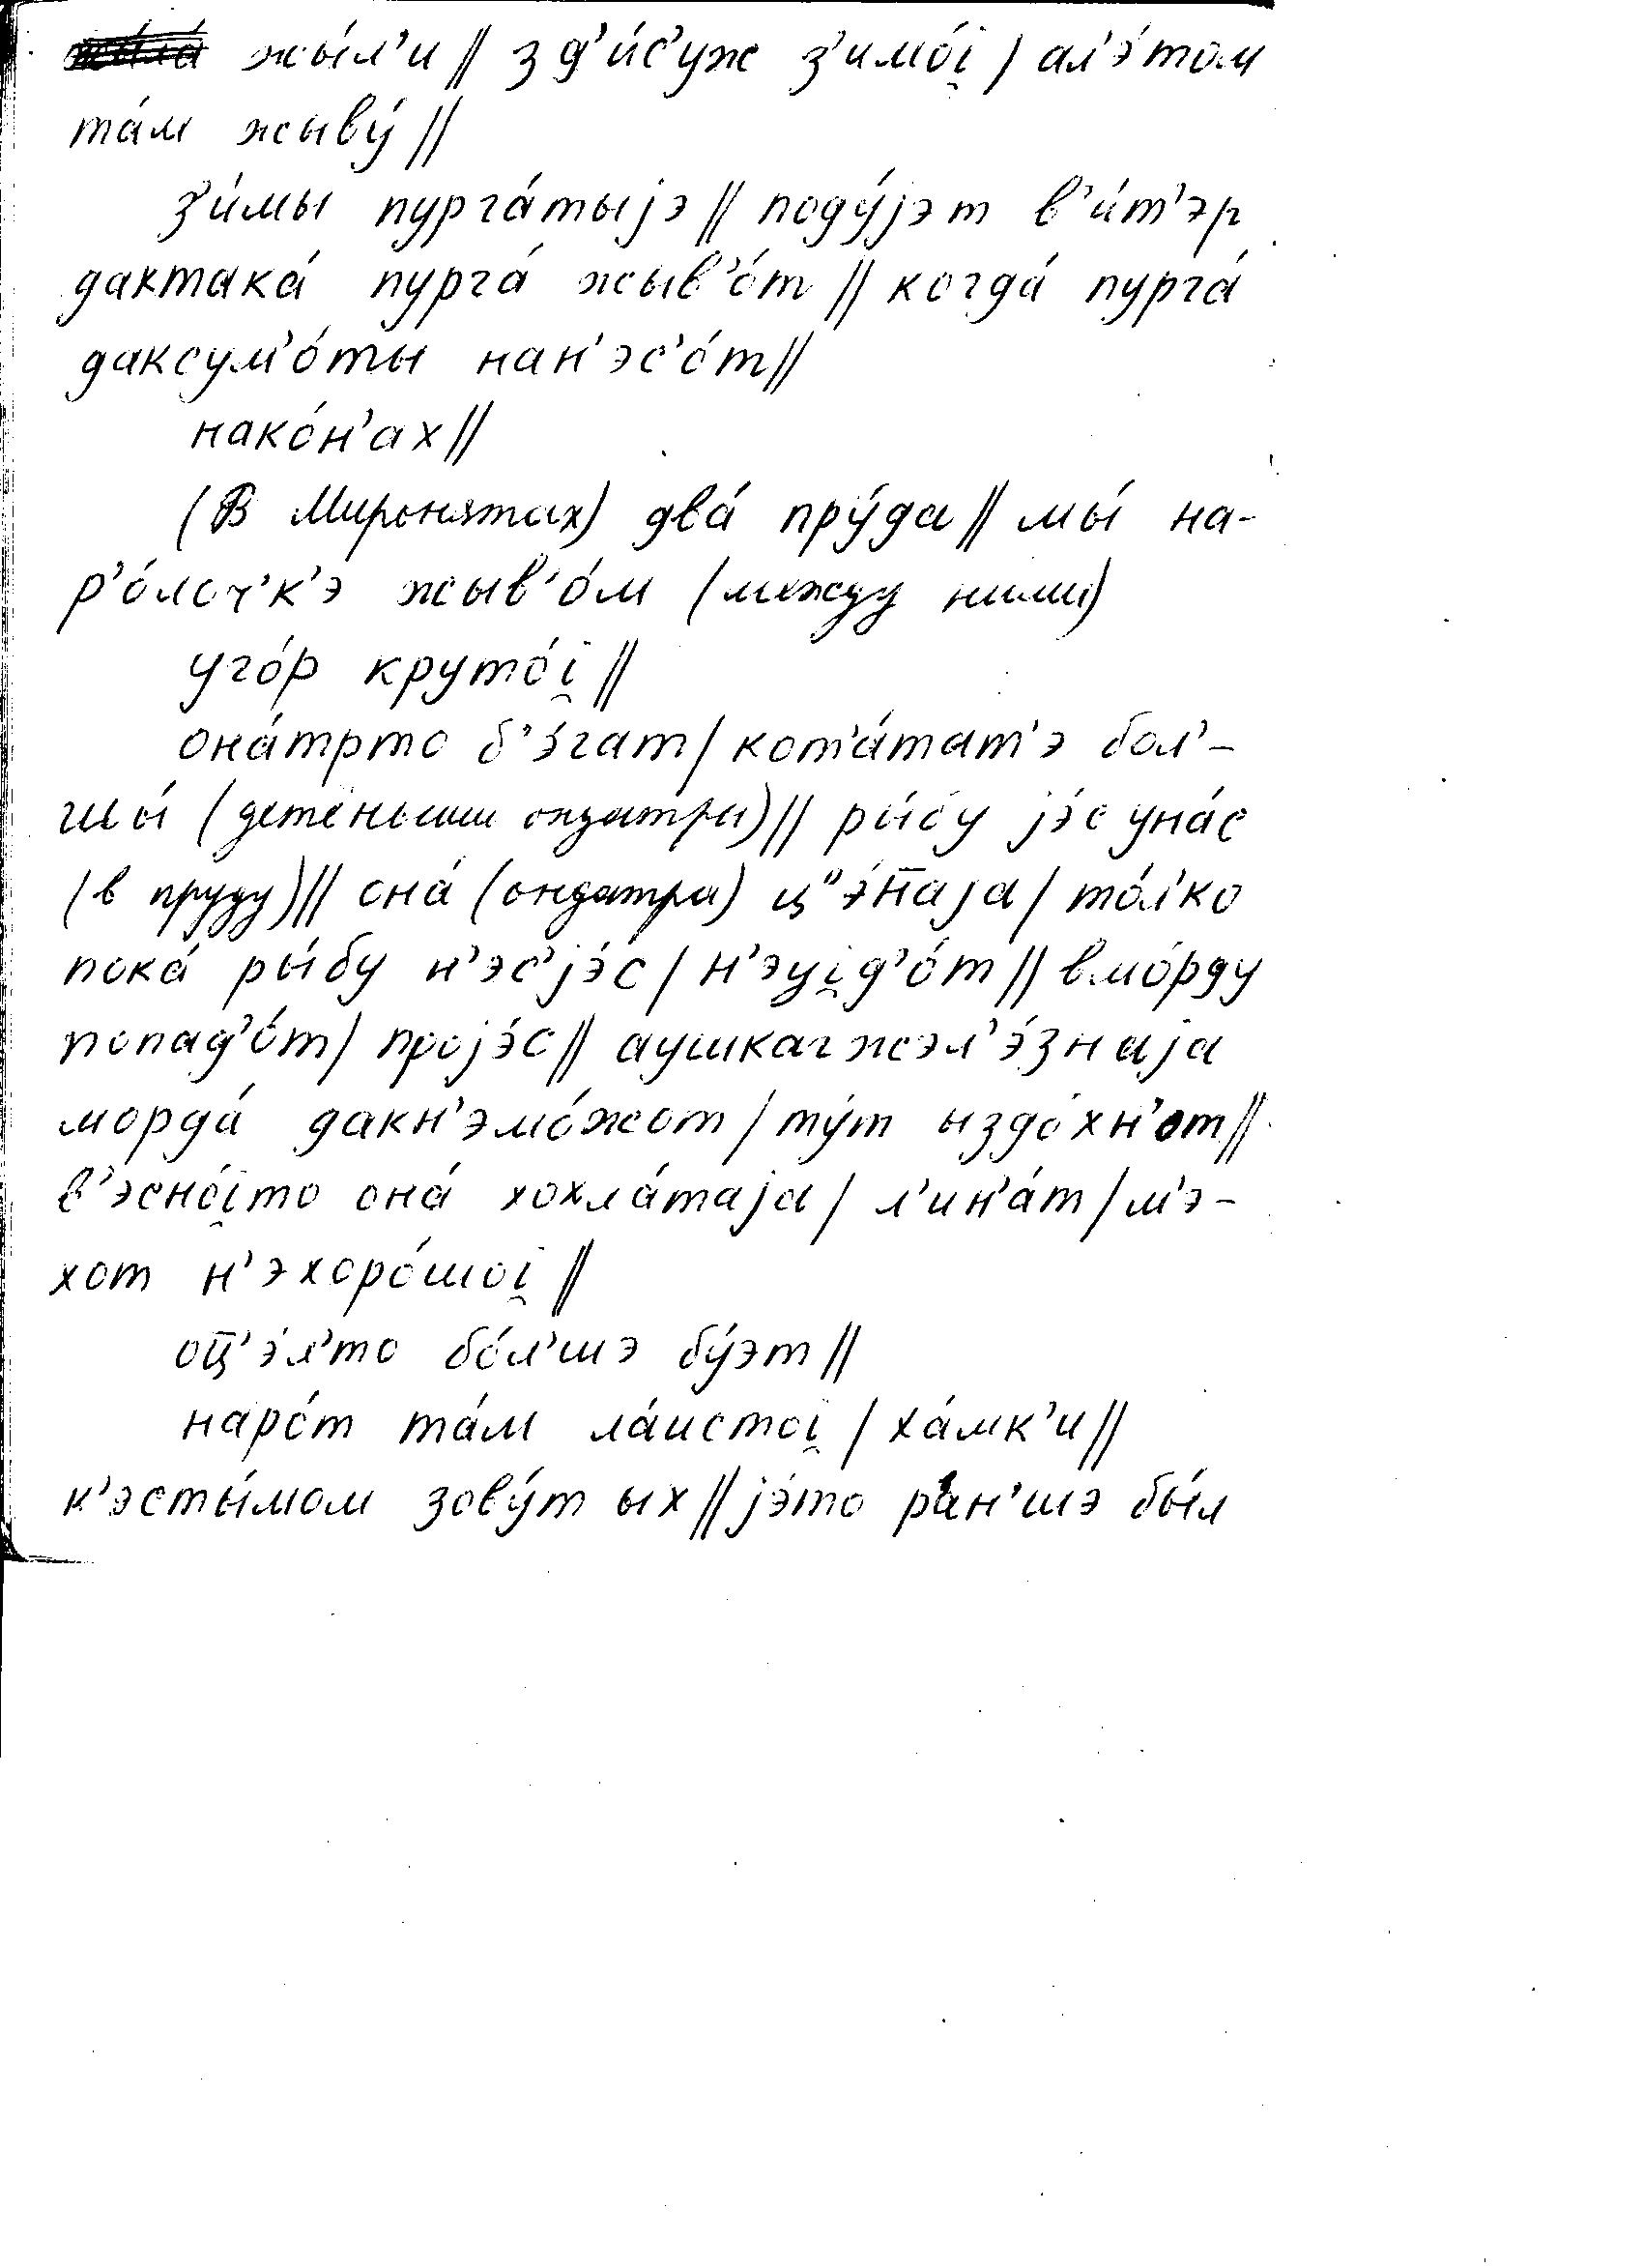 жы́л'и || зд'и́с'уж з'имо́i̯ | ал'э́том
та́м жыву́ ||
з'и́мы пурга́тыjэ || поду́jэт в'и́т'эр
дактака́ пурга́ жыв'о́т || когда́ пурга́
даксум'о́ты нан'эс'о́т ||
нако́н'ах ||
(В Миронятах) два́ пру́да || мы́ на-
р'о́лоч'к'э жыв'о́м (между ними)
уго́р круто́i̯ ||
она́трто б'э́гат | кот'а́тат'э бол'-
шы́ (детёныши ондатры) || ры́бу jэ́с уна́с
(в пруду) || она́ (ондатра) ц"э́п̅аjа | то́л'ко
пока́ ры́бу н'эс'jэ́с | н'эуi̯д'о́т || вмо́рду
попад'о́т | проjэ́с || аушкаг жэл'э́знаjа
морда́ дакн'эмо́жот | ту́т ыздо́хн'от ||
в'эсно́i̯то она́ хохла́таjа | л'ин'а́т | м'э-
хот н'эхоро́шоi̯ ||
оц̅'э́л'то бо́л'шэ бу́эт ||
наро́т та́м ла́истоi̯ | ха́мк'и ||
к'эсты́мом зову́т ых || jэ́то ра́н'шэ бы́л